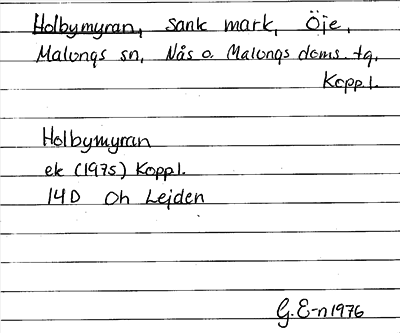 Holbymyran, sank mark, Öje,
Malungs sn, Nås o. Malungs doms. tg,
Koppl.
Holbymyran
ek (1975) Koppl.
14D Oh Lejden
G. E-n 1976